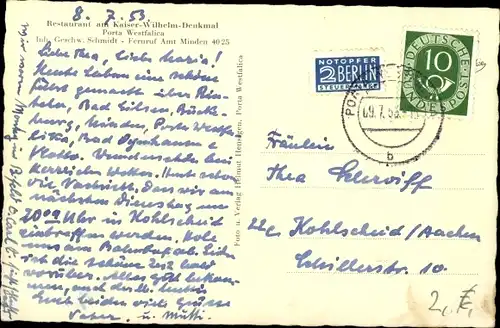 8. 7. 53
Restaurant am Kaiser-Wilhelm-Denkmal
Porta Westfalica
Inh. Geschw. Schmidt - Fernruf Amt Minden 4025
Liebe Thea, liebe Maria!
Heute haben eine schöne
Fahrt gemacht über Rin-
teln, Bad Eilsen, Bücke-
burg, Minden, Porta Westfa-
lika, Bad Oeynhausen
Vlotho. Wunderschön bei
herrlichem Wetter.
die Nachricht, dass wir am
nächsten Dienstag um
20⁰⁰ Uhr in Kohlscheid
eintreffen werden. Hole
uns am Bahnhof ab. Leider
ist die schöne Zeit bald
vorüber. Alles gut bekom-
men, auch der
Euch beiden viele Grüsse
Vater u. Mutti.
Foto u. Verlag Helmut Hennigen, Porta Westfalica
NOTOPFER
2 BERLIN
STEUERMARKE
DEUTSCHE
10
BUNDESPOST
b
Fräulein
Thea
22c Kohlscheid/Aachen
Schillerstr. 10